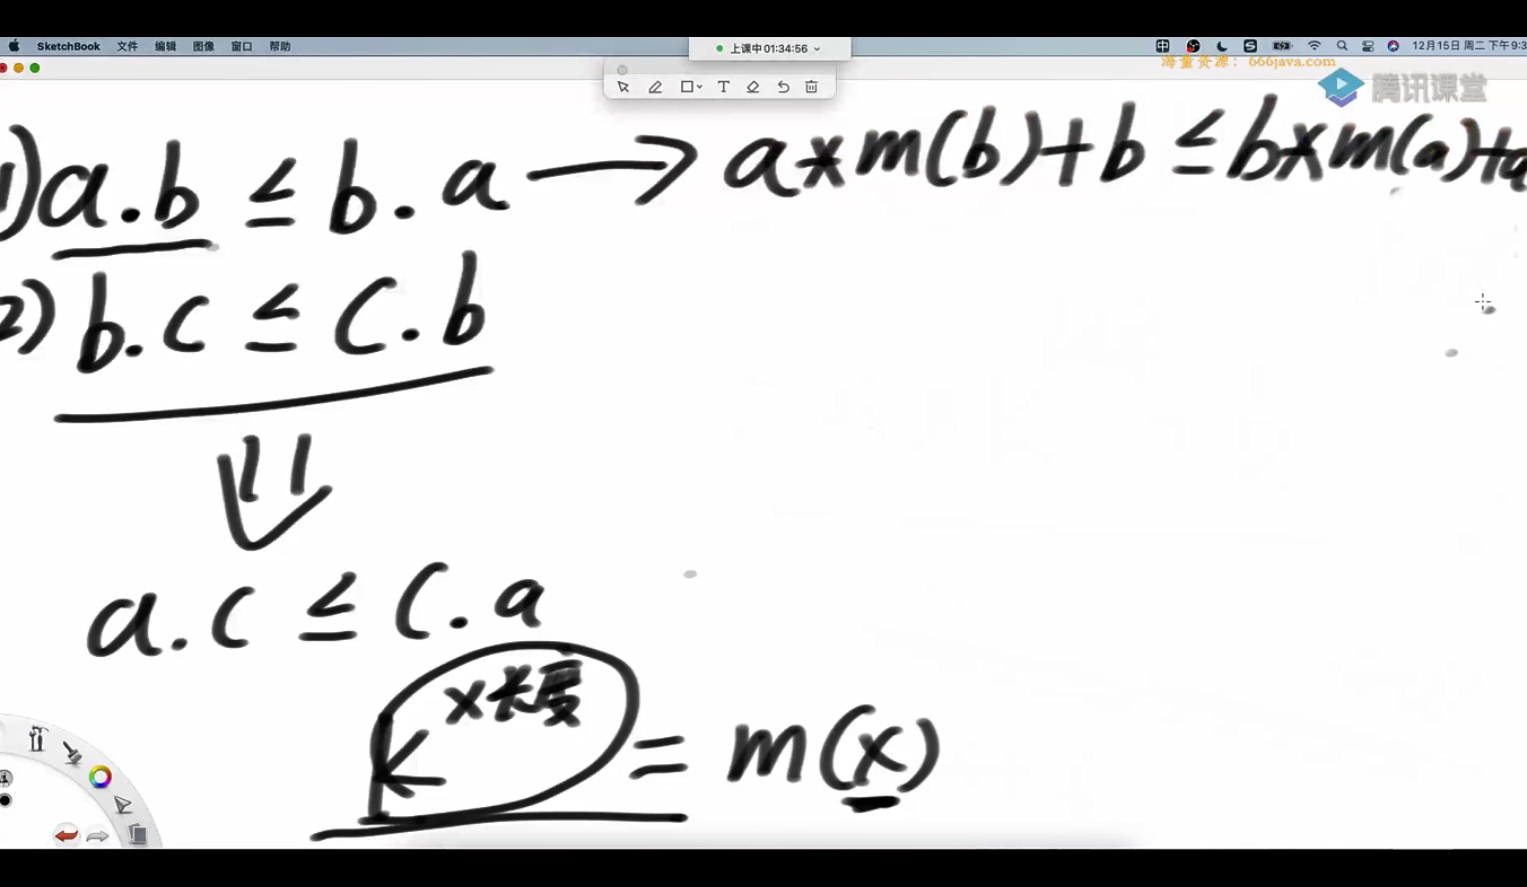 SketchBook 文件 编辑 图像 窗口 帮助
上课中 01:34:56
12月15日 周二 下午9:3
海量资源：666java.com
腾讯课堂
T
1) a.b ≤ b.a → a*m(b)+b ≤ b*m(a)+a
2) b.c ≤ c.b
⇓
a.c ≤ c.a
x长度
K = m(x)